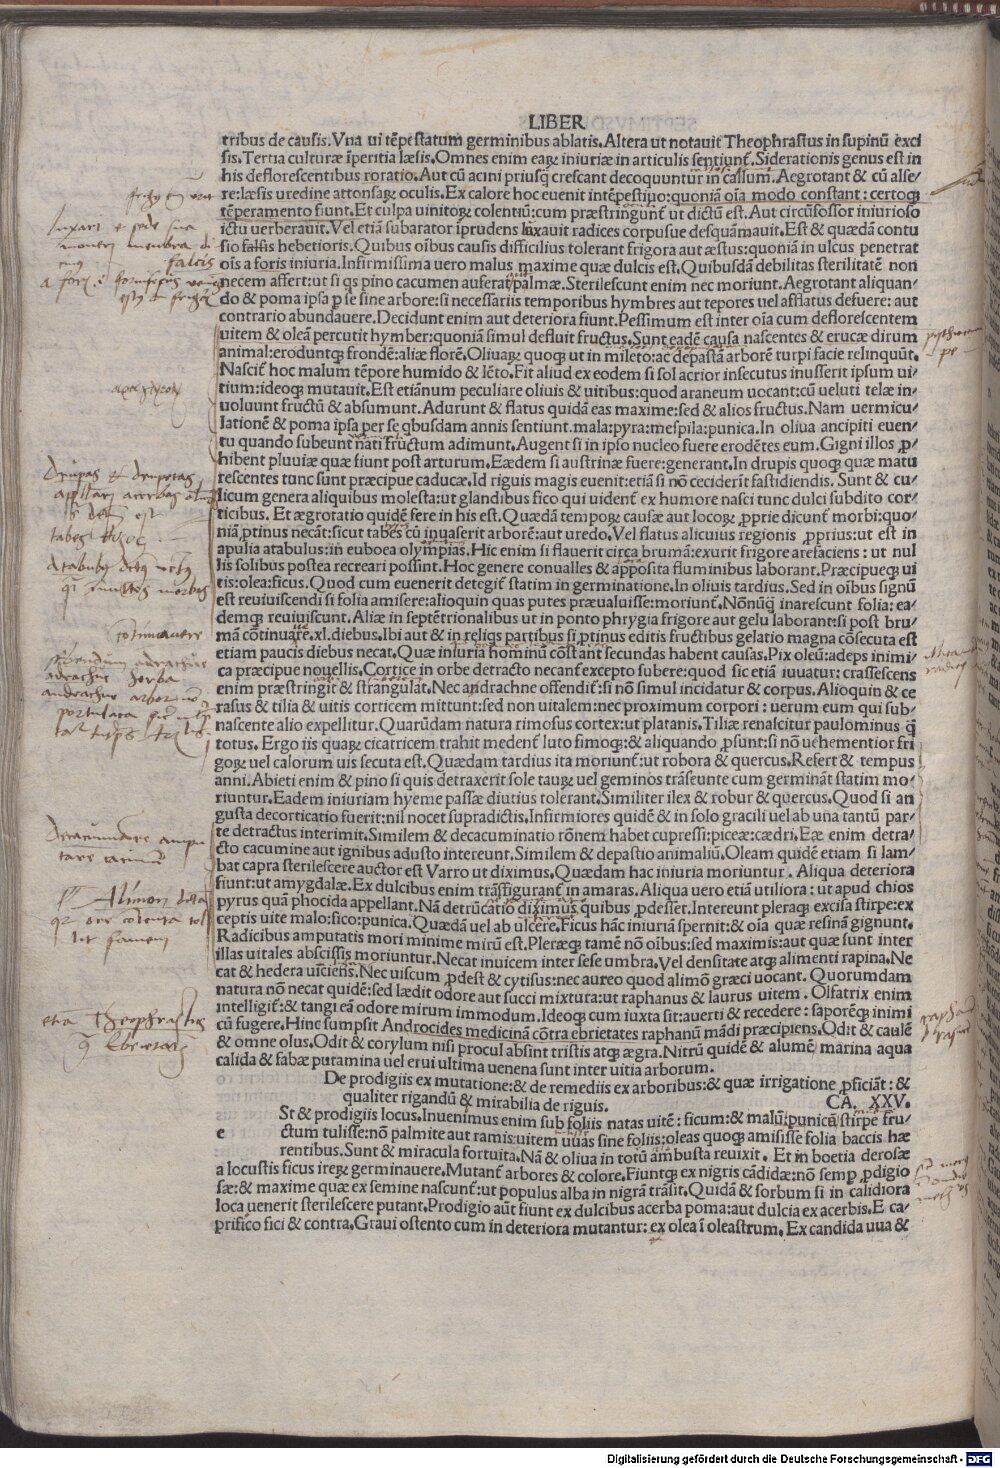 LIBER
tribus de causis. Vna ui tẽpestatum germinibus ablatis. Altera ut notauit Theophrastus in supinũ exci
sis. Tertia culturæ ĩperitia læsis. Omnes enim eaꝝ iniuriæ in articulis sentiunt̃. Siderationis genus est in
his deflorescentibus roratio. Aut cũ acini priusq̃ crescant decoquuntur in cassum. Aegrotant & cũ alse
re: læsis uredine attonsaꝝ oculis. Ex calore hoc euenit intẽpestiuo: quoniã oĩa modo constant: certoqꝫ
tẽperamento fiunt. Et culpa uinitoꝝ colentiũ: cum præstringunt̃ ut dictũ est. Aut circũfossor iniurioso
ictu uerberauit. Vel etiã subarator ĩprudens luxauit radices corpusue desquãmauit. Est & quædã contu
sio falsis hebetioris. Quibus oĩbus causis difficilius tolerant frigora aut æstus: quoniã in ulcus penetrat
oĩs a foris iniuria. Infirmissima uero malus maxime quæ dulcis est. Quibusdã debilitas sterilitatẽ non
necem affert: ut si qs pino cacumen auferat palmæ. Sterilescunt enim nec moriunt. Aegrotant aliquan/
do & poma ipsa ꝑ se sine arbore: si necessariis temporibus hymbres aut tepores uel afflatus defuere: aut
contrario abundauere. Decidunt enim aut deteriora fiunt. Pessimum est inter oĩa cum deflorescentem
uitem & oleã percutit hymber: quoniã simul defluit fructus. Sunt eadẽ causa nascentes & erucæ dirum
animal: eroduntqꝫ frondẽ: aliæ florẽ. Oliuaꝝ quoqꝫ ut in mileto: ac depastã arborẽ turpi facie relinquũt.
Nascit̃ hoc malum tẽpore humido & lẽto. Fit aliud ex eodem si sol acrior insecutus inusserit ipsum ui/
tium: ideoqꝫ mutauit. Est etiãnum peculiare oliuis & uitibus: quod araneum uocant: cũ ueluti telæ in/
uoluunt fructũ & absumunt. Adurunt & flatus quidã eas maxime: sed & alios fructus. Nam uermicu/
lationẽ & poma ipsa per se qbusdam annis sentiunt. mala: pyra: mespila: punica. In oliua ancipiti euen/
tu quando subeunt nati fructum adimunt. Augent si in ipso nucleo fuere erodẽtes eum. Gigni illos ꝓ/
hibent pluuiæ quæ fiunt post arturum. Eædem si austrinæ fuere: generant. In drupis quoqꝫ quæ matu
rescentes tunc sunt præcipue caducæ. Id riguis magis euenit: etiã si nõ ceciderĩt fastidiendis. Sunt & cu/
licum genera aliquibus molesta: ut glandibus fico qui uident̃ ex humore nasci tunc dulci subdito cor/
ticibus. Et ægrotatio quidẽ fere in his est. Quædã tempoꝝ causæ aut locoꝝ ꝓprie dicunt̃ morbi: quo/
niã ꝓtinus necãt: sicut tabes cũ inuaserit arborẽ: aut uredo. Vel flatus alicuius regionis ꝓprius: ut est in
apulia atabulus: in euboea olympias. Hic enim si flauerit circa brumã: exurit frigore arefaciens: ut nul
lis solibus postea recreari possint. Hoc genere conualles & apposita fluminibus laborant. Præcipueqꝫ ui
tis: olea: ficus. Quod cum euenerit detegit̃ statim in germinatione. In oliuis tardius. Sed in oĩbus signũ
est reuiuiscendi si folia amisere: alioquin quas putes præualuisse: moriunt̃. Nõnũq̃ inarescunt folia: ea/
demqꝫ reuiuiscunt. Aliæ in septẽtrionalibus ut in ponto phrygia frigore aut gelu laborant: si post bru/
mã cõtinuare .xl. diebus. Ibi aut & in reliqs partibus si ꝓtinus editis fructibus gelatio magna cõsecuta est
etiam paucis diebus necat. Quæ iniuria hominũ cõstant secundas habent causas. Pix oleũ: adeps inimi/
ca præcipue nouellis. Cortice in orbe detracto necant̃ excepto subere: quod sic etiã iuuatur: crassescens
enim præstringit & strangulat. Nec andrachne offendit̃: si nõ simul incidatur & corpus. Alioquin & ce
rasus & tilia & uitis corticem mittunt: sed non uitalem: nec proximum corpori: uerum eum qui sub/
nascente alio expellitur. Quarũdam natura rimosus cortex: ut platanis. Tiliæ renascitur paulominus q̃
totus. Ergo iis quaꝝ cicatricem trahit medent̃ luto fimoqꝫ: & aliquando ꝓsunt: si nõ uehementior fri
goꝝ uel calorum uis secuta est. Quædam tardius ita moriunt̃: ut robora & quercus. Refert & tempus
anni. Abieti enim & pino si quis detraxerit sole tauꝝ uel geminos trãseunte cum germinãt statim mo/
riuntur. Eadem iniuriam hyeme passæ diutius tolerant. Similiter ilex & robur & quercus. Quod si an
gusta decorticatio fuerit: nil nocet supradictis. Infirmiores quidẽ & in solo gracili uel ab una tantũ par/
te detractus interimit. Similem & decacuminatio rõnem habet cupressi: piceæ: cædri. Eæ enim detra/
cto cacumine aut ignibus adusto intereunt. Similem & depastio animaliũ. Oleam quidẽ etiam si lam/
bat capra sterilescere auctor est Varro ut diximus. Quædam hac iniuria moriuntur. Aliqua deteriora
fiunt: ut amygdalæ. Ex dulcibus enim trãsfigurant̃ in amaras. Aliqua uero etiã utiliora: ut apud chios
pyrus quã phocida appellant. Nã detrũcatio diximus quibus ꝓdesset. Intereunt pleraqꝫ excisa stirpe: ex
ceptis uite malo: fico: punica. Quædã uel ab ulcere. Ficus hãc iniuriã spernit: & oĩa quæ resinã gignunt.
Radicibus amputatis mori minime mirũ est. Pleræqꝫ tamẽ nõ oĩbus: sed maximis: aut quæ sunt inter
illas uitales abscissis moriuntur. Necat inuicem inter sese umbra. Vel densitate atqꝫ alimenti rapina. Ne
cat & hedera uĩciens. Nec uiscum ꝓdest & cytisus: nec aureo quod alimõ græci uocant. Quorumdam
natura nõ necat quidẽ: sed lædit odore aut succi mixtura: ut raphanus & laurus uitem. Olfatrix enim
intelligit̃: & tangi eã odore mirum immodum. Ideoqꝫ cum iuxta sit: auerti & recedere: saporẽqꝫ inimi
cũ fugere. Hinc sumpsit Androcides medicinã cõtra ebrietates raphanũ mãdi præcipiens. Odit & caulẽ
& omne olus. Odit & corylum nisi procul absint tristis atqꝫ ægra. Nitrũ quidẽ & alumẽ marina aqua
calida & fabæ putamina uel erui ultima uenena sunt inter uitia arborum.
De prodigiis ex mutatione: & de remediis ex arboribus: & quæ irrigatione ꝓficiãt: &
qualiter rigandũ & mirabilia de riguis. CA. XXV.
e St & prodigiis locus. Inuenimus enim sub foliis natas uitẽ: ficum: & malũ: punicũ stirpe fru/
ctum tulisse: nõ palmite aut ramis: uitem uuas sine foliis: oleas quoqꝫ amisisse folia baccis hæ
rentibus. Sunt & miracula fortuita. Nã & oliua in totũ ambusta reuixit. Et in boetia derosæ
a locustis ficus ireꝝ germinauere. Mutant̃ arbores & colore. Fiuntqꝫ ex nigris cãdidæ: nõ semꝑ ꝓdigio
sæ: & maxime quæ ex semine nascunt̃: ut populus alba in nigrã trãsit. Quidã & sorbum si in calidiora
loca uenerit sterilescere putant. Prodigio aũt fiunt ex dulcibus acerba poma: aut dulcia ex acerbis. E ca/
prifico fici & contra. Graui ostento cum in deteriora mutantur: ex olea ĩ oleastrum. Ex candida uua &
falcis
Drupas
tabes
Decacuminare
etiã Theophrastus
Digitalisierung gefördert durch die Deutsche Forschungsgemeinschaft - DFG